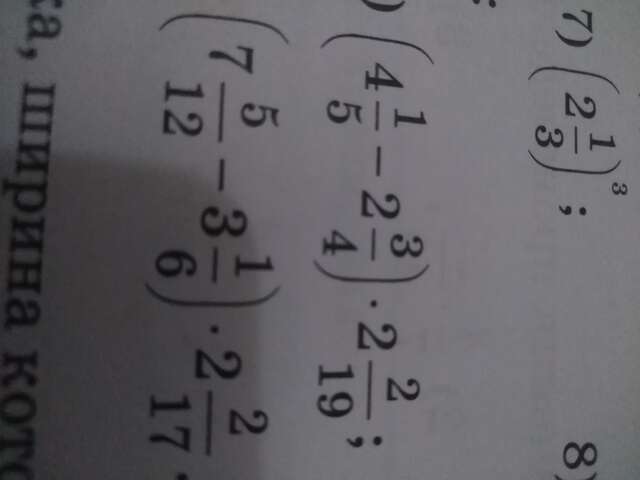 7) (2 1/3)³; 8)
(4 1/5 − 2 3/4) · 2 2/19;
(7 5/12 − 3 1/6) · 2 2/17.
ширина